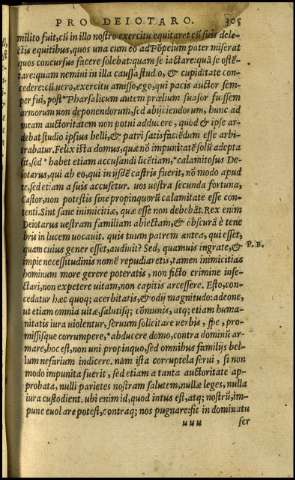 PRO DEIOTARO. 305
milito fuit, cū in illo nostro exercitu equitaret cū suis dele-
ctis equitibus, quos una cum eo ad Pōpeium pater miserat
quos concursus facere solebat: quam se iactare: quā se ostē-
tare: quam nemini in illa caussa studio, & cupiditate con-
cedere: cū uero, exercitu amisso, ego, qui pacis auctor sem-
per fui, post* Pharsalicum autem prœlium suasor fuissem
armorum non deponendorum, sed abijciendorum, hunc ad
meam auctoritatem non potui adducere, quod & ipse ar-
debat studio ipsius belli, & patri satisfaciēdum esse arbi-
trabatur. Felix ista domus, quæ nō impunitatē solū adepta
sit, sed* habet etiam accusandi licētiam, *calamitosus De-
iotarus, qui ab eo, qui in ijsdē castris fuerit, nō modo apud
te, sed etiam a suis accusetur. uos uestra secunda fortuna,
Castor, non potestis sine propinquorū calamitate esse con-
tenti. Sint sane inimicitiæ, quæ esse non debebāt. Rex enim
Deiotarus uestram familiam abiectam, & obscurā è tene
bris in lucem uocauit. quis tuum patrem anteà, qui esset,
quam cuius gener esset, audiuit? Sed, quamuis ingrate, & P. B.
impie necessitudinis nomē repudiaretis, tamen inimicitias
hominum more gerere poteratis, non ficto crimine inse-
ctari, non expetere uitam, non capitis arcessere. Esto, con-
cedatur hæc quoq; acerbitatis, & odij magnitudo: adeone,
ut etiam omnia uitæ, salutisq; cōmunis, atq; etiam huma-
nitatis iura uiolentur, seruum solicitare verbis, spe, pro-
missisque corrumpere, *abducere domo, contra dominū ar-
mare, hoc est, non uni propinquo, sed omnibus familijs bel-
lum nefarium indicere. nam ista corruptela serui, si non
modo impunita fuerit, sed etiam a tanta auctoritate ap-
probata, nulli parietes nostram salutem, nullæ leges, nulla
iura custodient. ubi enim id, quod intus est, atq; nostrū, im-
pune euolare potest, contraq; nos pugnare: fit in dominatu
uuu ser